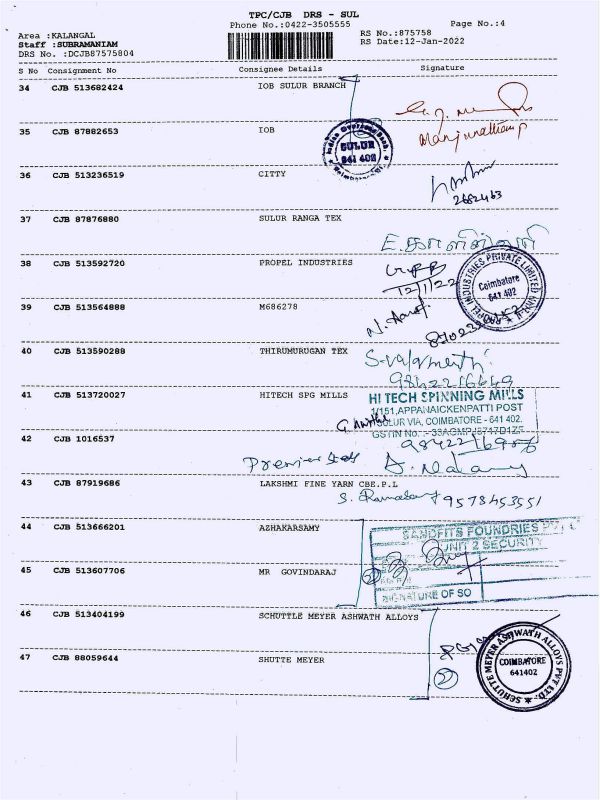 TPC/CJB DRS - SUL
Phone No.:0422-3505555 Page No.:4
Area :KALANGAL RS No.:875758
Staff :SUBRAMANIAM RS Date:12-Jan-2022
DRS No. :DCJB87575804
S No Consignment No Consignee Details Signature
34 CJB 513682424 IOB SULUR BRANCH
35 CJB 87882653 IOB
Indian Overseas Bank
SULUR
641 402
36 CJB 513236519 CITTY
2682463
37 CJB 87876880 SULUR RANGA TEX
38 CJB 513592720 PROPEL INDUSTRIES
12/1/22
PROPEL INDUSTRIES PRIVATE LIMITED
Coimbatore
641 402
39 CJB 513564888 M686278
40 CJB 513590288 THIRUMURUGAN TEX
41 CJB 513720027 HITECH SPG MILLS
HI TECH SPINNING MILLS
1/151,APPANAICKENPATTI POST
SULUR VIA, COIMBATORE - 641 402.
GSTIN No.
42 CJB 1016537
43 CJB 87919686 LAKSHMI FINE YARN CBE.P.L
9578453551
44 CJB 513666201 AZHAKARSAMY
SANDFITS FOUNDRIES
UNIT 2 SECURITY
45 CJB 513607706 MR GOVINDARAJ
SIGNATURE OF SO
46 CJB 513404199 SCHUTTLE MEYER ASHWATH ALLOYS
47 CJB 88059644 SHUTTE MEYER
SCHUTTE MEYER ASHWATH ALLOYS PVT LTD.
COIMBATORE
641402